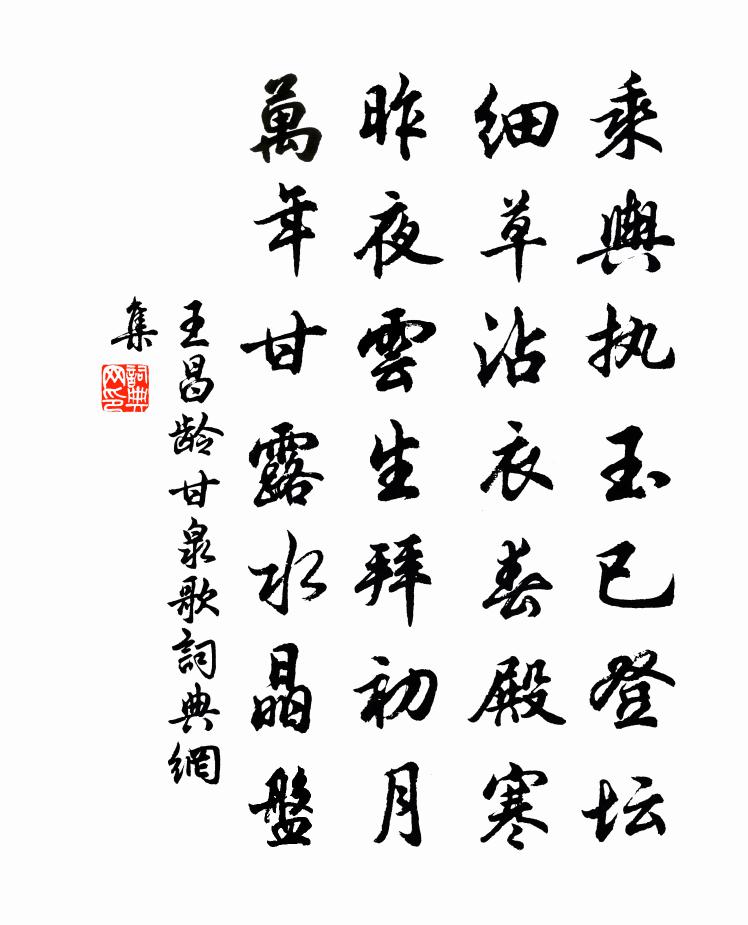 乘輿执玉已登坛
细草沾衣春殿寒
昨夜雲生拜初月
萬年甘露水晶盤
王昌龄甘泉歌詞典網
集
詞典
网印